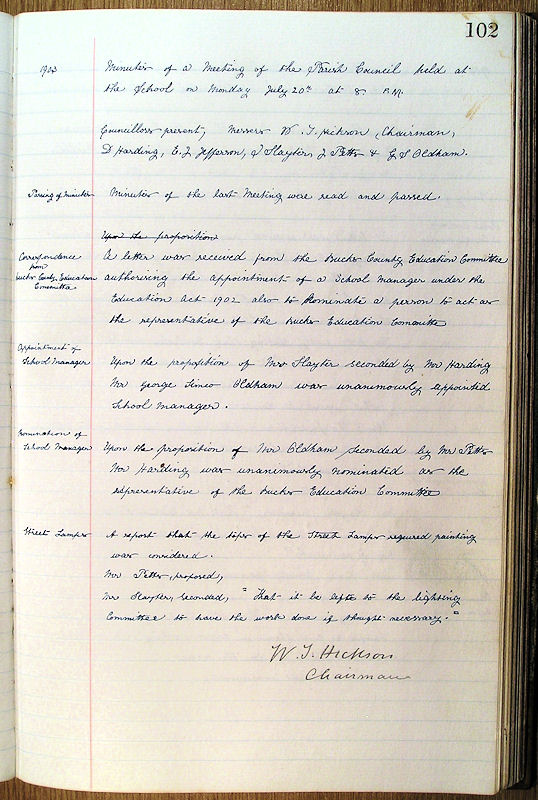 102
1903
Minutes of a Meeting of the Parish Council held at
the School on Monday July 20th at 8 P.M.
Councillors present, Messrs W. T. Hickson, Chairman,
D Harding, E. J. Jefferson, Slayter, J Petts & G S Oldham.
Passing of minutes
Minutes of the last Meeting were read and passed.
Upon the proposition
Correspondence
from
Bucks County Education
Committee
A letter was received from the Bucks County Education Committee
authorising the appointment of a School Manager under the
Education Act 1902 also to Nominate a person to act as
the representative of the Bucks Education Committee
Appointment of
School Manager
Upon the proposition of Mr Slayter seconded by Mr Harding
Mr George Simco Oldham was unanimously appointed
School Manager.
Nomination of
School Manager
Upon the proposition of Mr Oldham seconded by Mr Petts
Mr Harding was unanimously nominated as the
representative of the Bucks Education Committee
Street Lamps
A report that the tops of the Street Lamps required painting
was considered.
Mr Petts, proposed,
Mr Slayter, seconded, "That it be left to the lighting
Committee to have the work done if thought necessary."
W. T. Hickson
Chairman